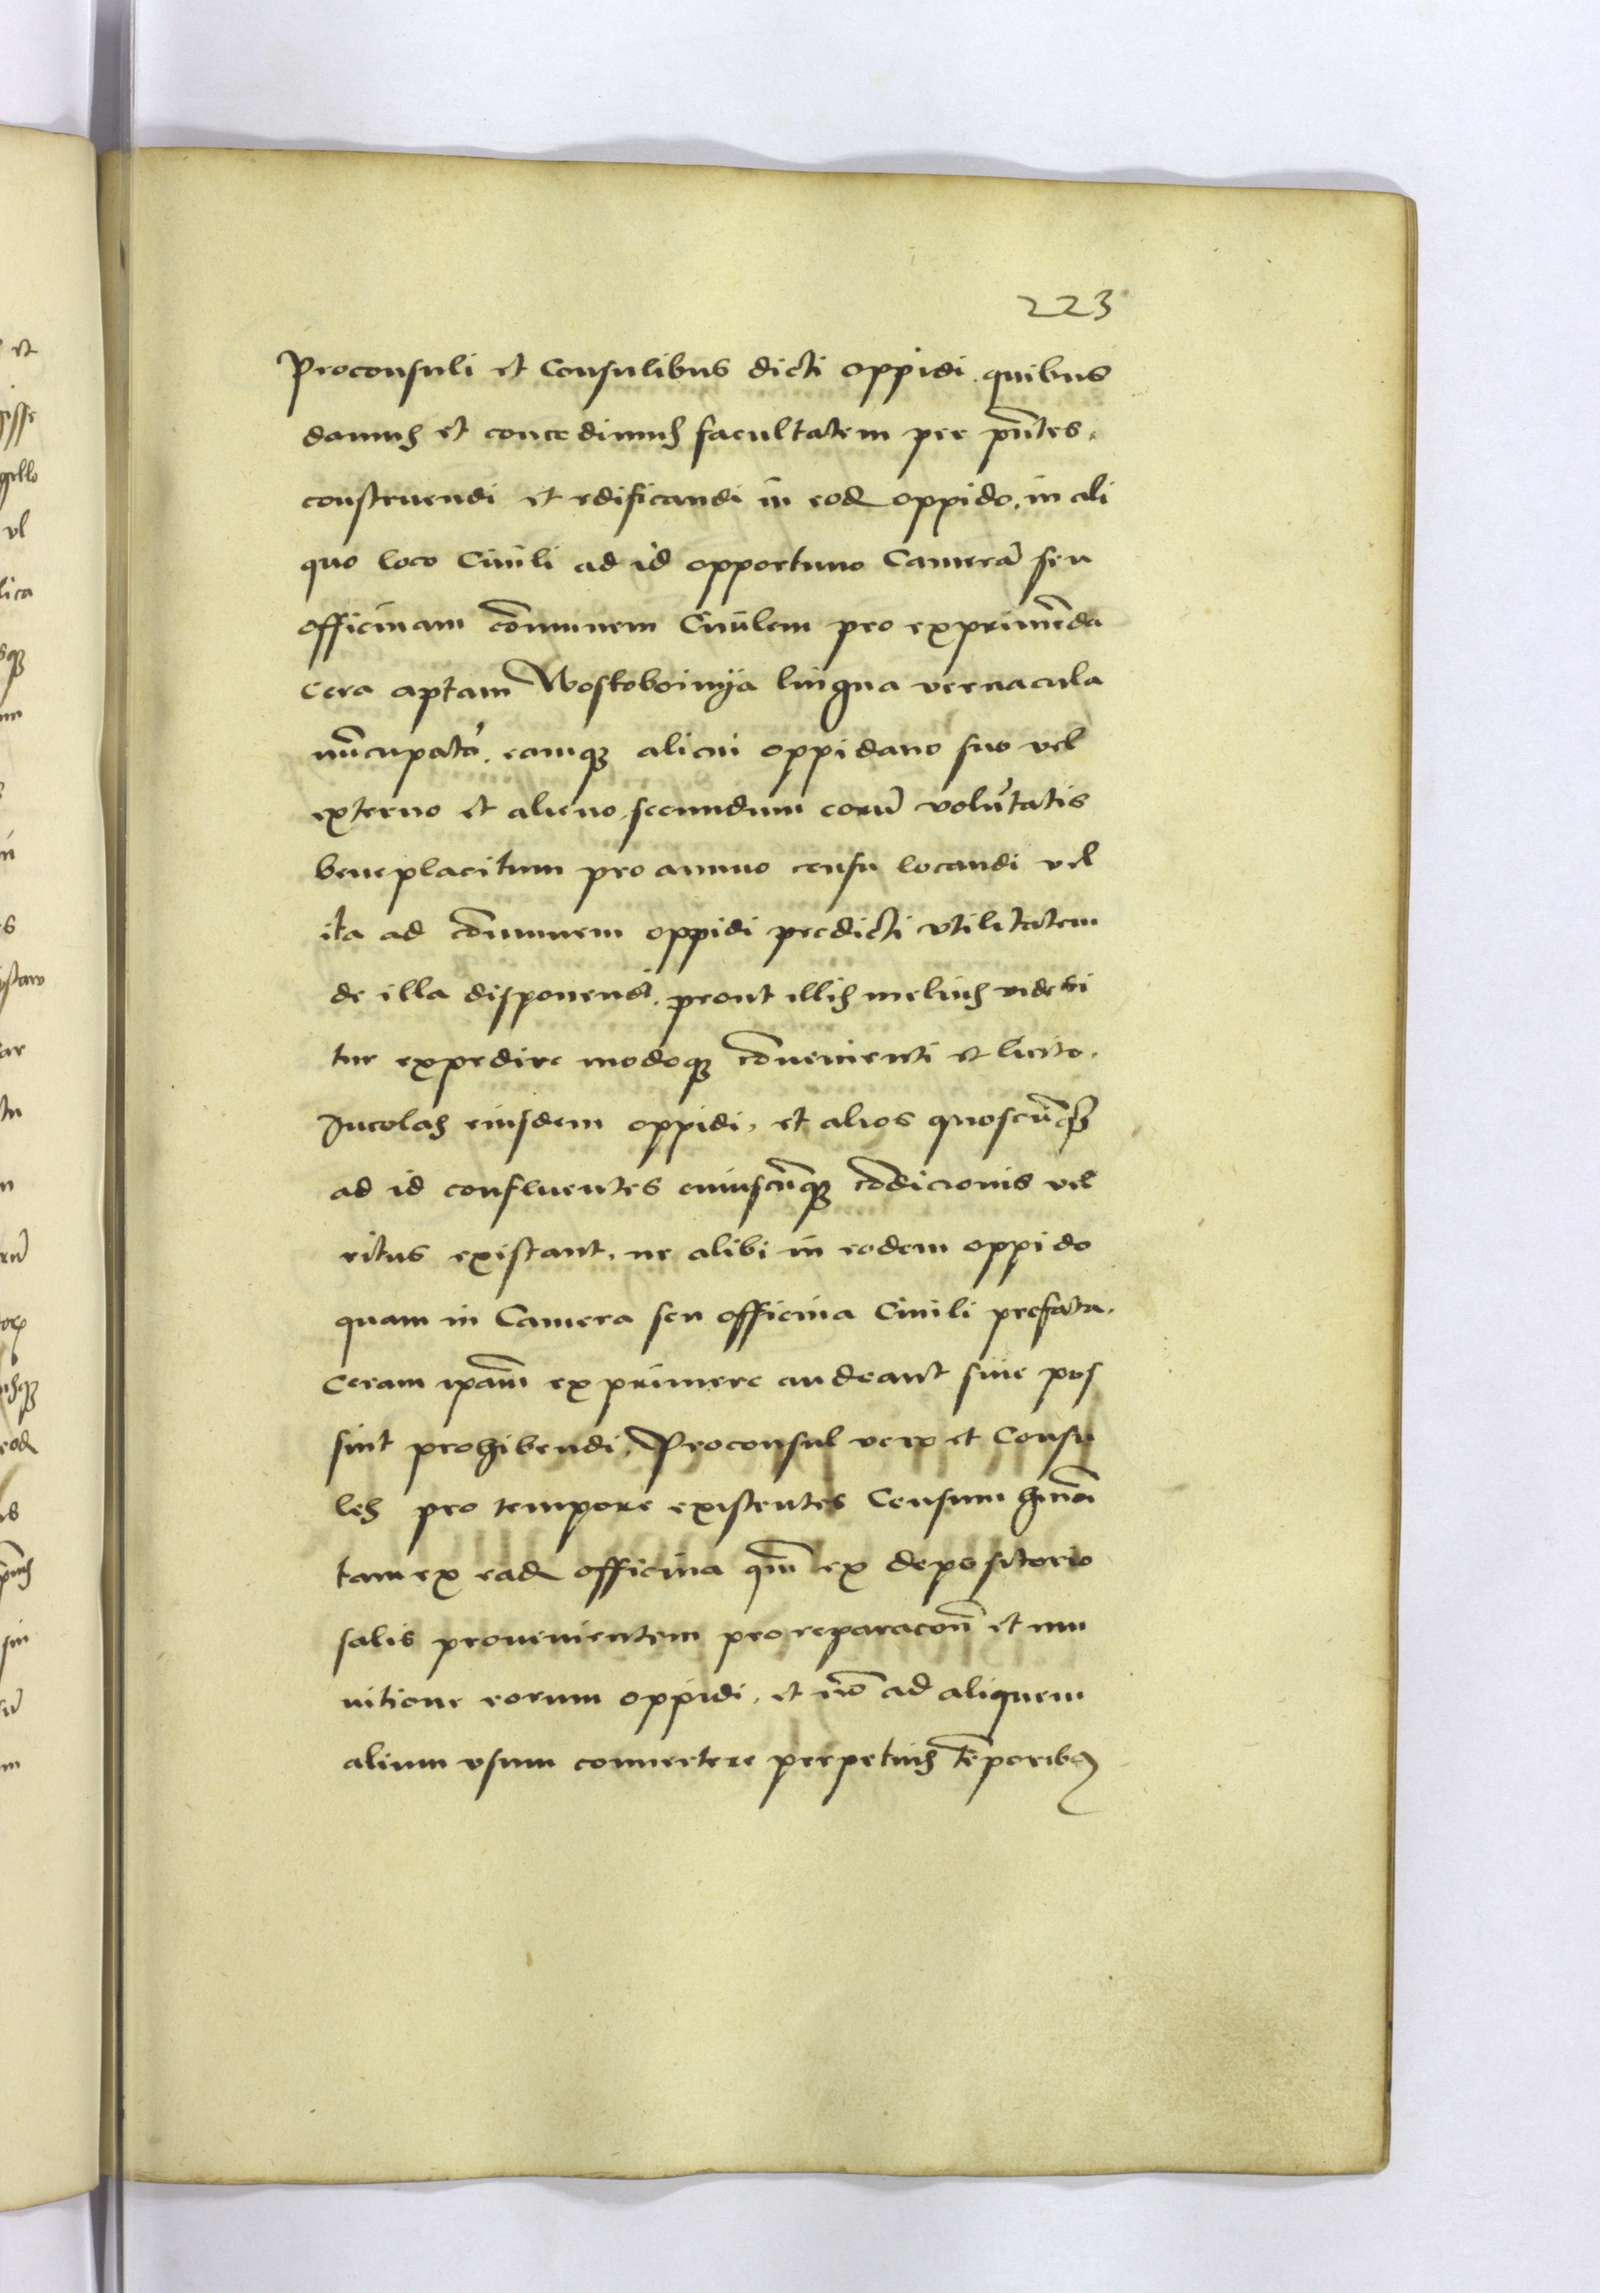 223
Proconsuli et Consulibus dicti oppidi. quibus
damus et concedimus facultatem per pñtes.
construendi et edificandi in eod oppido. in ali
quo loco Ciuili ad id opportuno Camerā seu
officinam cōmunem Ciuilem pro exprimēda
cera aptam Woskoboinija lingua vernacula
nūcupatā. eamqꝫ alicui oppidano suo vel
externo et alieno. secundum eorū volūtatis
beneplacitum pro annuo censu locandi vel
ita ad cōmunem oppidi predicti vtilitatem
de illa disponendi. prout illis melius videbi
tur expedire modoqꝫ cōuenienti et licito.
Incolas eiusdem oppidi. et alios quoscūqꝫ
ad id confluentes cuiuscūqꝫ cōdicionis vel
ritus existant. ne alibi in eodem oppido
quam in Camera seu officina Ciuili prefata.
Ceram ipām exprimere audeant siue pos
sint prohibendi. Proconsul vero et Consu
les pro tempore existentes Censum hmōi
tam ex ead officina qm̄ ex depositorio
salis prouenientem pro reparacōn̄ et mu
nitione eorum oppidi. et nō ad aliquem
alium vsum conuertere perpetuis tēporibꝫ